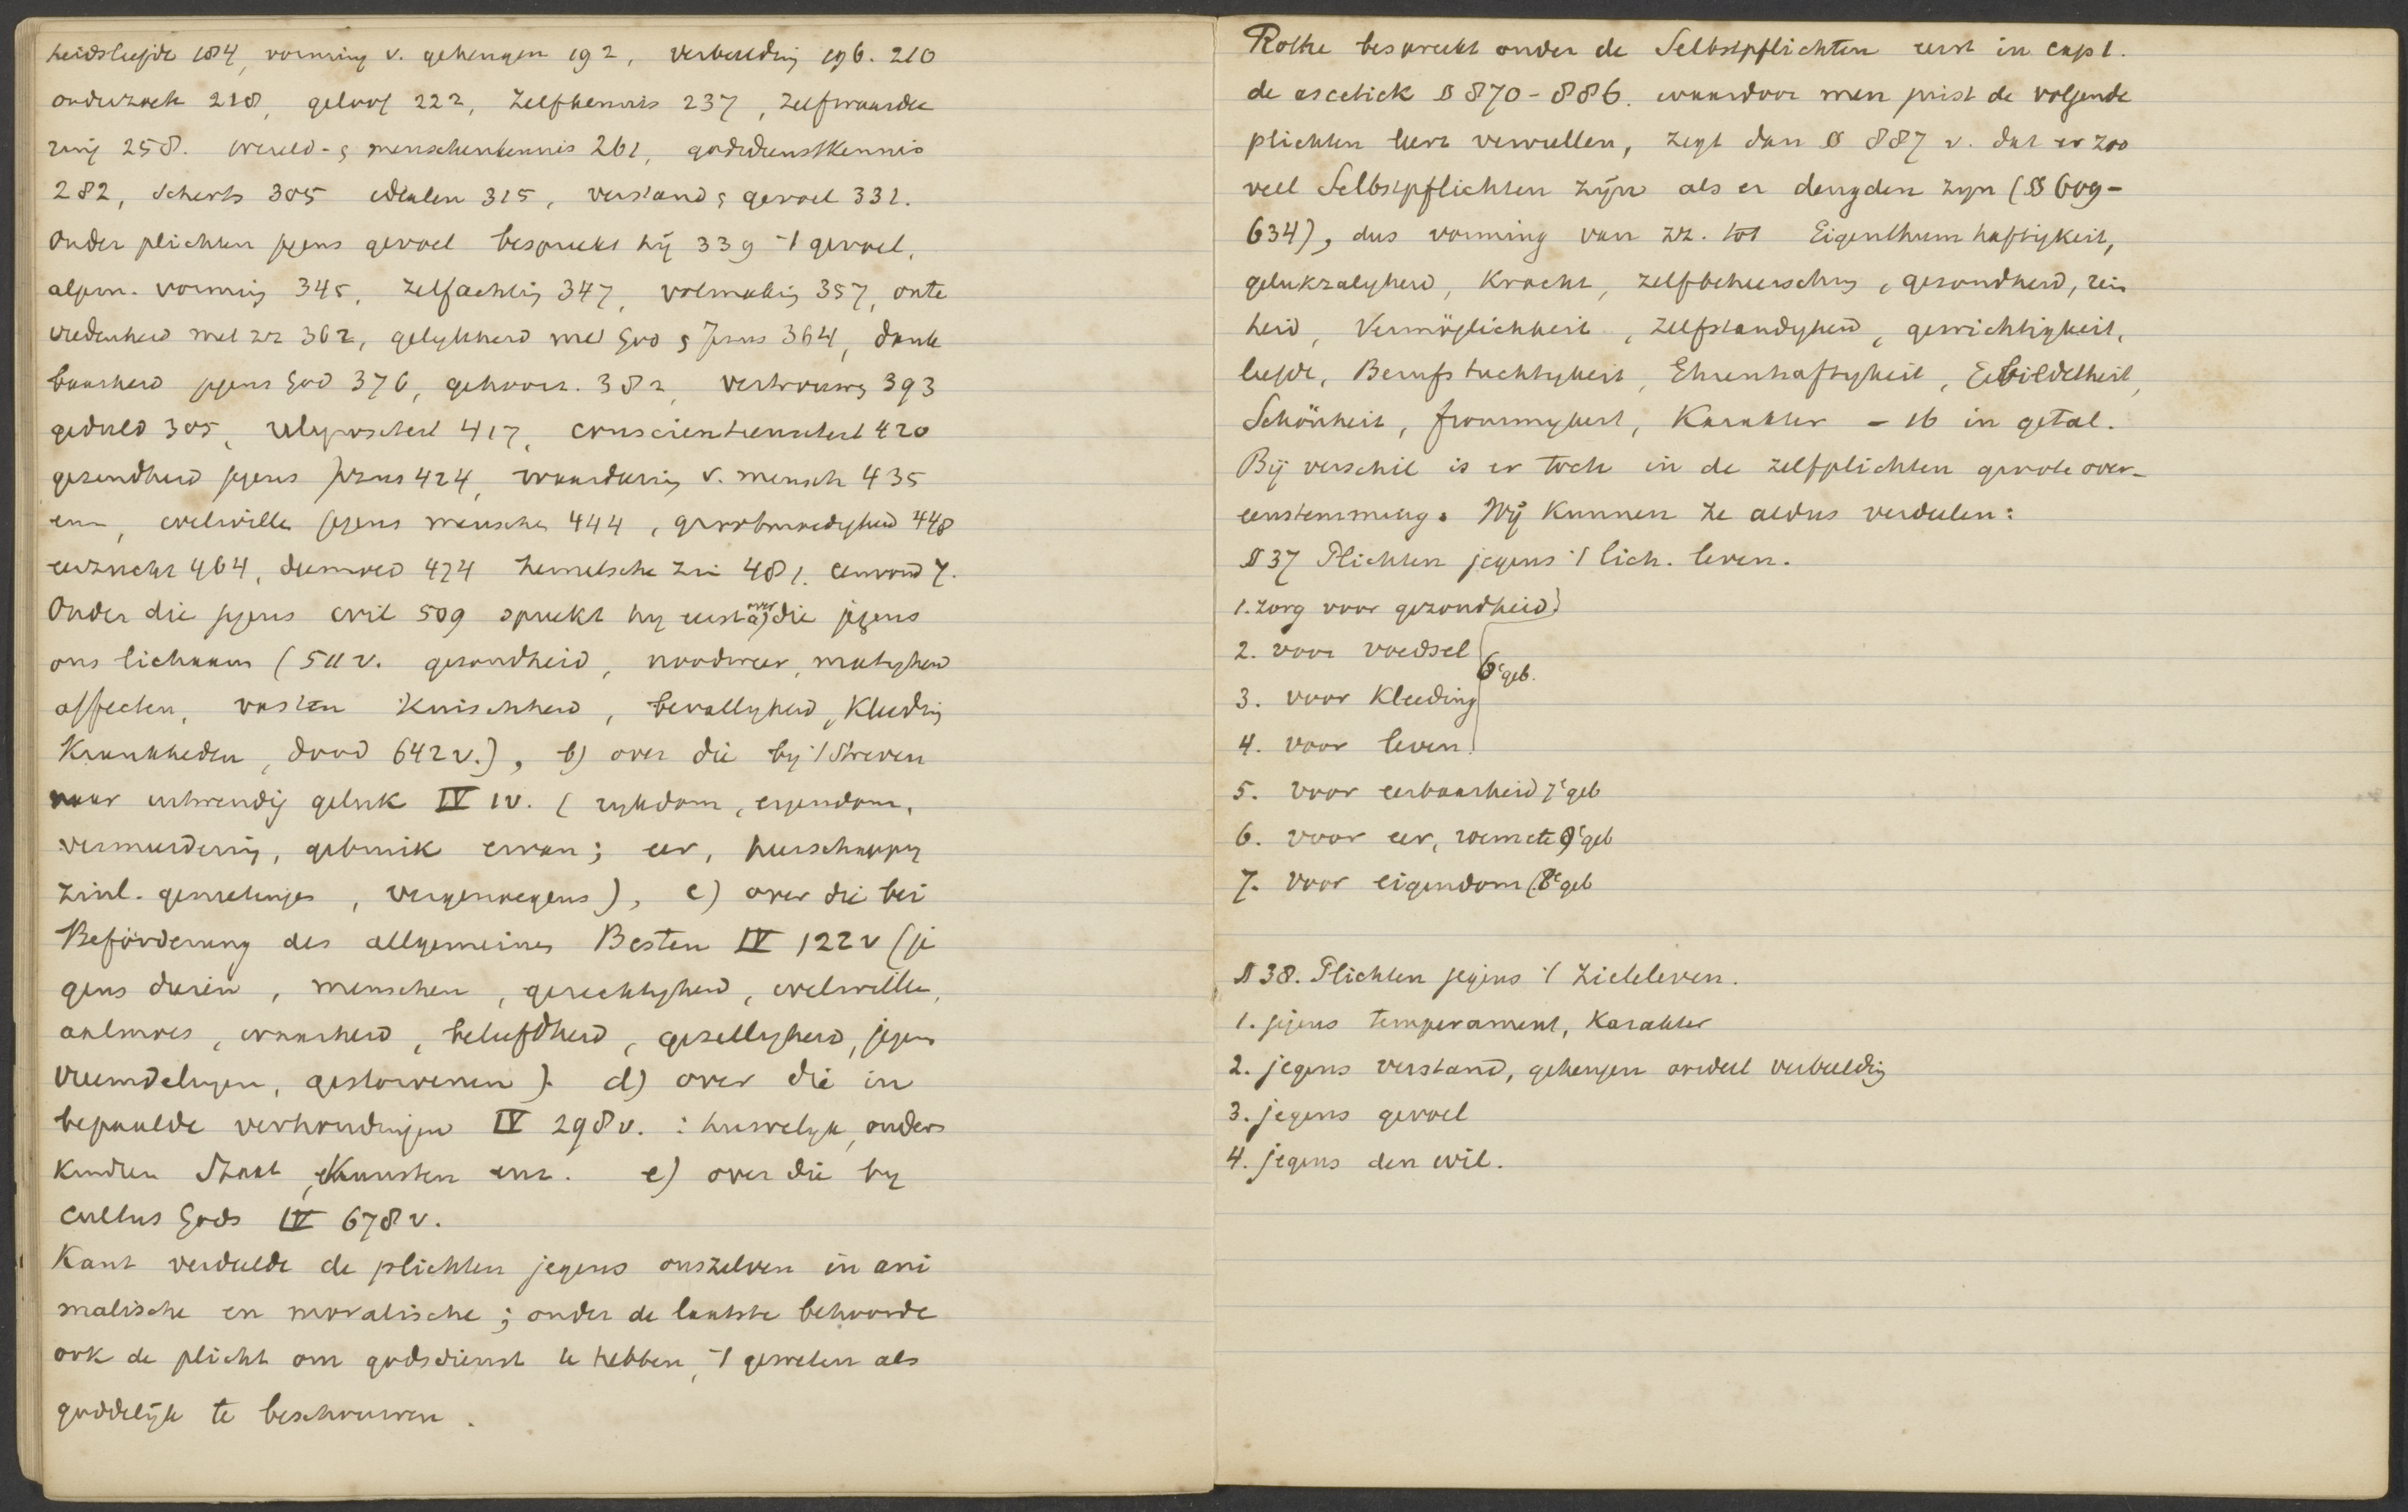 heidsliefde 184, vorming v. geheugen 192, verbeelding 196. 210
onderzoek 218, geloof 222, zelfkennis 237, zelfwaardee
ring 258. wereld- & menschenkennis 261, godsdienstkennis
282, scherts 305 idealen 315, verstand & gevoel 331.
Onder plichten jegens gevoel bespreekt hij 339 't gevoel,
algem. vorming 345, zelfachting 347, volmaking 357, onte
vredenheid met zz 362, gelijkheid met God & Jezus 364, dank
baarheid jegens God 376, gehoorz. 382, vertrouwen 393
geduld 305, religiositeit 417, conscientieusiteit 420
gezindheid jegens Jezus 424, waardeering v. mensch 435
enn, welwillen jegens menschen 444, grootmoedigheid 448
eerzucht 464, deemoed 474 hemelsche zin 481. eenvoud 7.
Onder die jegens wil 509 spreekt hy eerst a) over die jegens
ons lichaam (511 v. gezondheid, noodweer, matigheid
affecten, vasten kuischheid, bevalligheid, kleeding
Krankheden, dood 642 v.), b) over die by 't streven
naar uitwendig geluk IV 1v. (rykdom, eigendom,
vermeerdering, gebruik ervan; eer, heerschappy
zinl. genietingen, vergenoegens), c) over die bei
Beförderung des allgemeinen Besten IV 122 v (je
gens dieren, menschen, gerechtigheid, welwillen,
aalmoes, waarheid, beleefdheid, gezelligheid, jegens
vreemdelingen, gestorvenen). d) over die in
bepaalde verhoudingen IV 298 v. : huwelyk, ouders
kinderen Staat, Kunsten enz. e) over die by
cultus Gods IV 678 v.
Kant verdeelde de plichten jegens onszelven in ani
malische en moralische; onder de laatste behoorde
ook de plicht om godsdienst te hebben, 't geweten als
goddelijk te beschouwen.
Rothe bespreekt onder de Selbstpflichten eerst in cap 1.
de ascetick § 870-886. waardoor men juist de volgende
plichten leert vervullen, zegt dan § 887 v. dat er zoo
veel Selbstpflichten zijn als er deugden zyn (§§ 609-
634), dus vorming van zz. tot Eigenthumhaftigkeit,
gelukzaligheid, Kracht, zelfbeheersching, gezondheid, rein
heid, Vermöglichkeit, zelfstandigheid, gewichtigkeit,
liefde, Berufstüchtigkeit, Ehrenhaftigkeit, Gebildetheit,
Schönheit, frommigkeit, Karakter - 16 in getal.
Bij verschil is er toch in de zelfplichten groote over-
eenstemming. Wij kunnen ze aldus verdeelen:
§ 37 Plichten jegens 't lich. leven.
1. zorg voor gezondheid
2. voor voedsel
6e geb.
3. voor Kleeding
4. voor leven
5. voor eerbaarheid 7e geb
6. voor eer, roem etc 9e geb
7. voor eigendom (8e geb
§ 38. Plichten jegens 't zieleleven.
1. jegens temperament, Karakter
2. jegens verstand, geheugen oordeel verbeelding
3. jegens gevoel
4. jegens den wil.